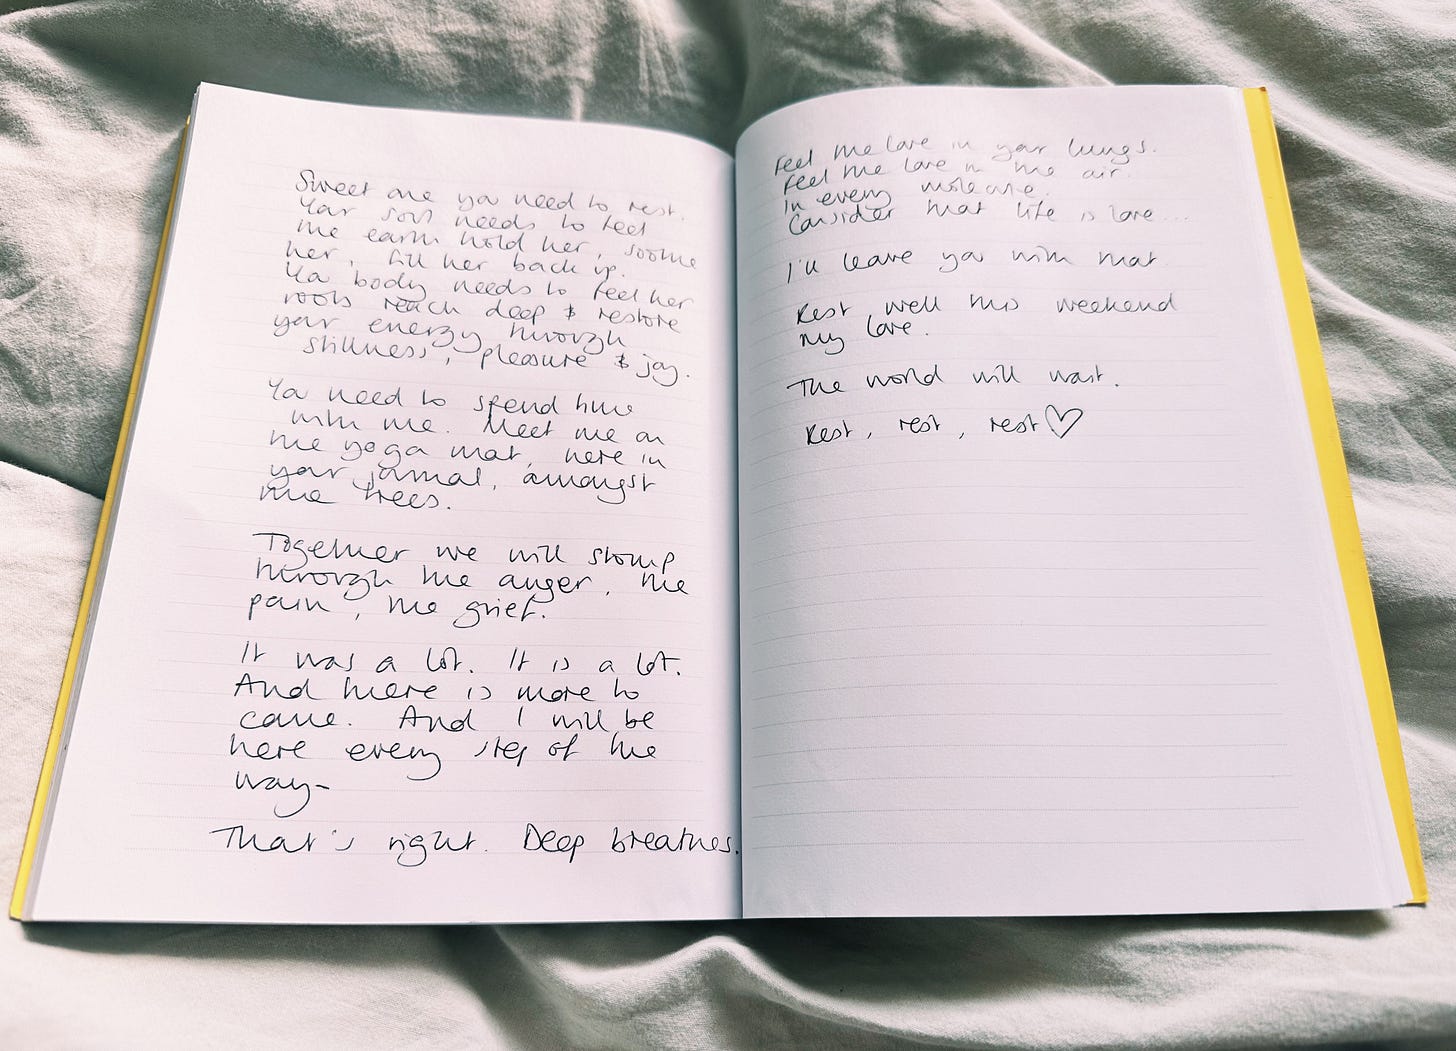 Sweet one you need to rest.
Your soul needs to feel
the earth hold her, soothe
her, fill her back up.
Your body needs to feel her
roots reach deep & restore
your energy through
stillness, pleasure & joy.
You need to spend time
with me. Meet me on
the yoga mat, here in
your journal, amongst
the trees.
Together we will stomp
through the anger, the
pain, the grief.
It was a lot. It is a lot.
And there is more to
come. And I will be
here every step of the
way-
That's right. Deep breathes.
Feel the love in your lungs.
Feel the love in the air.
In every molecule.
Consider that life is love....
I'll leave you with that
Rest well this weekend
my love.
The world will wait.
Rest, rest, rest♡